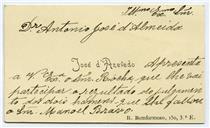 Illmo Exmo Snr.
Dr. Antonio José d'Almeida
José d'Azevedo Apresenta
a V. Exa. o Snr. Rocha, que lhe vai
participar o resultado do julgamento
dos dois homens que lhe fallou
o Snr. Manoel Bravo.
R. Bemformoso, 150, 3.º E.